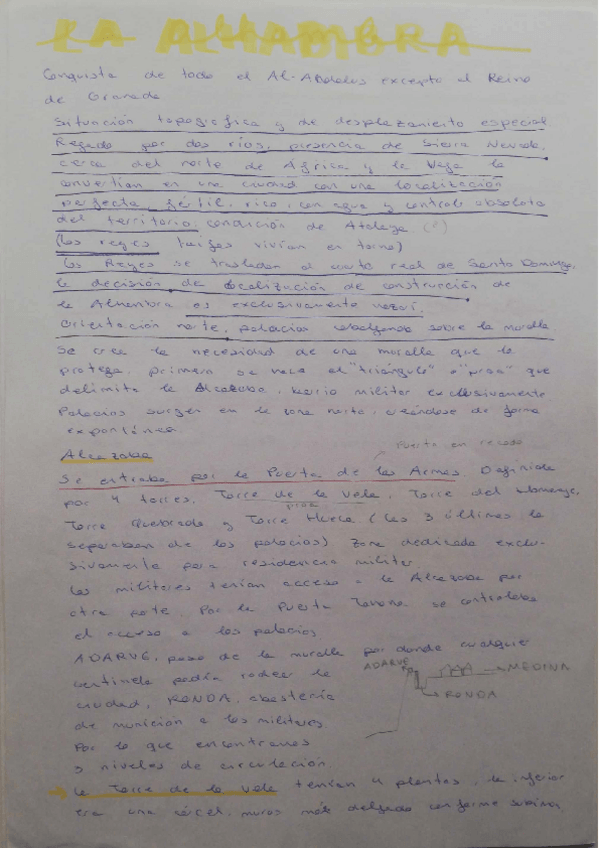 LA ALHAMBRA
Conquista de todo el Al-Andalus excepto el Reino
de Granada
Situación topográfica y de desplazamiento especial
Regado por dos ríos, presencia de Sierra Nevada,
cerca del norte de Africa y la Vega la
convertían en una ciudad con una localización
perfecta, fértil, rica, con agua y control absoluto
del territorio, condición de Atalaya (?)
(los reyes taifas vivían en torno)
Los Reyes se trasladan al cuarto real de Santo Domingo,
la decisión de localización de construcción de
la Alhambra es exclusivamente nazarí.
Orientación norte, palacios cabalgando sobre la muralla
Se crea la necesidad de una muralla que la
proteja, primero se hace el "triángulo" o "proa" que
delimita la Alcazaba, barrio militar exclusivamente
Palacios surgen en la zona norte, creándose de forma
expontánea.
Alcazaba
Puerta en recodo
Se entraba por la Puerta de las Armas. Definida
por 4 torres, Torre de la Vela, Torre del Homenaje,
proa
Torre Quebrada y Torre Hueca (las 3 últimas la
separaban de los palacios) Zona dedicada exclu-
sivamente para residencia militar.
Los militares tenían acceso a la Alcazaba por
otra parte. Por la Puerta se controlaba
el acceso a los palacios
ADARVE, paso de la muralla por donde cualquier
centinela podía rodear la
ciudad, RONDA, abastecía
de munición a los militares
Por lo que encontramos
3 niveles de circulación.
ADARVE
MEDINA
RONDA
La Torre de la Vela tenían 4 plantas, la inferior
era una cárcel, muros más delgado conforme subina,